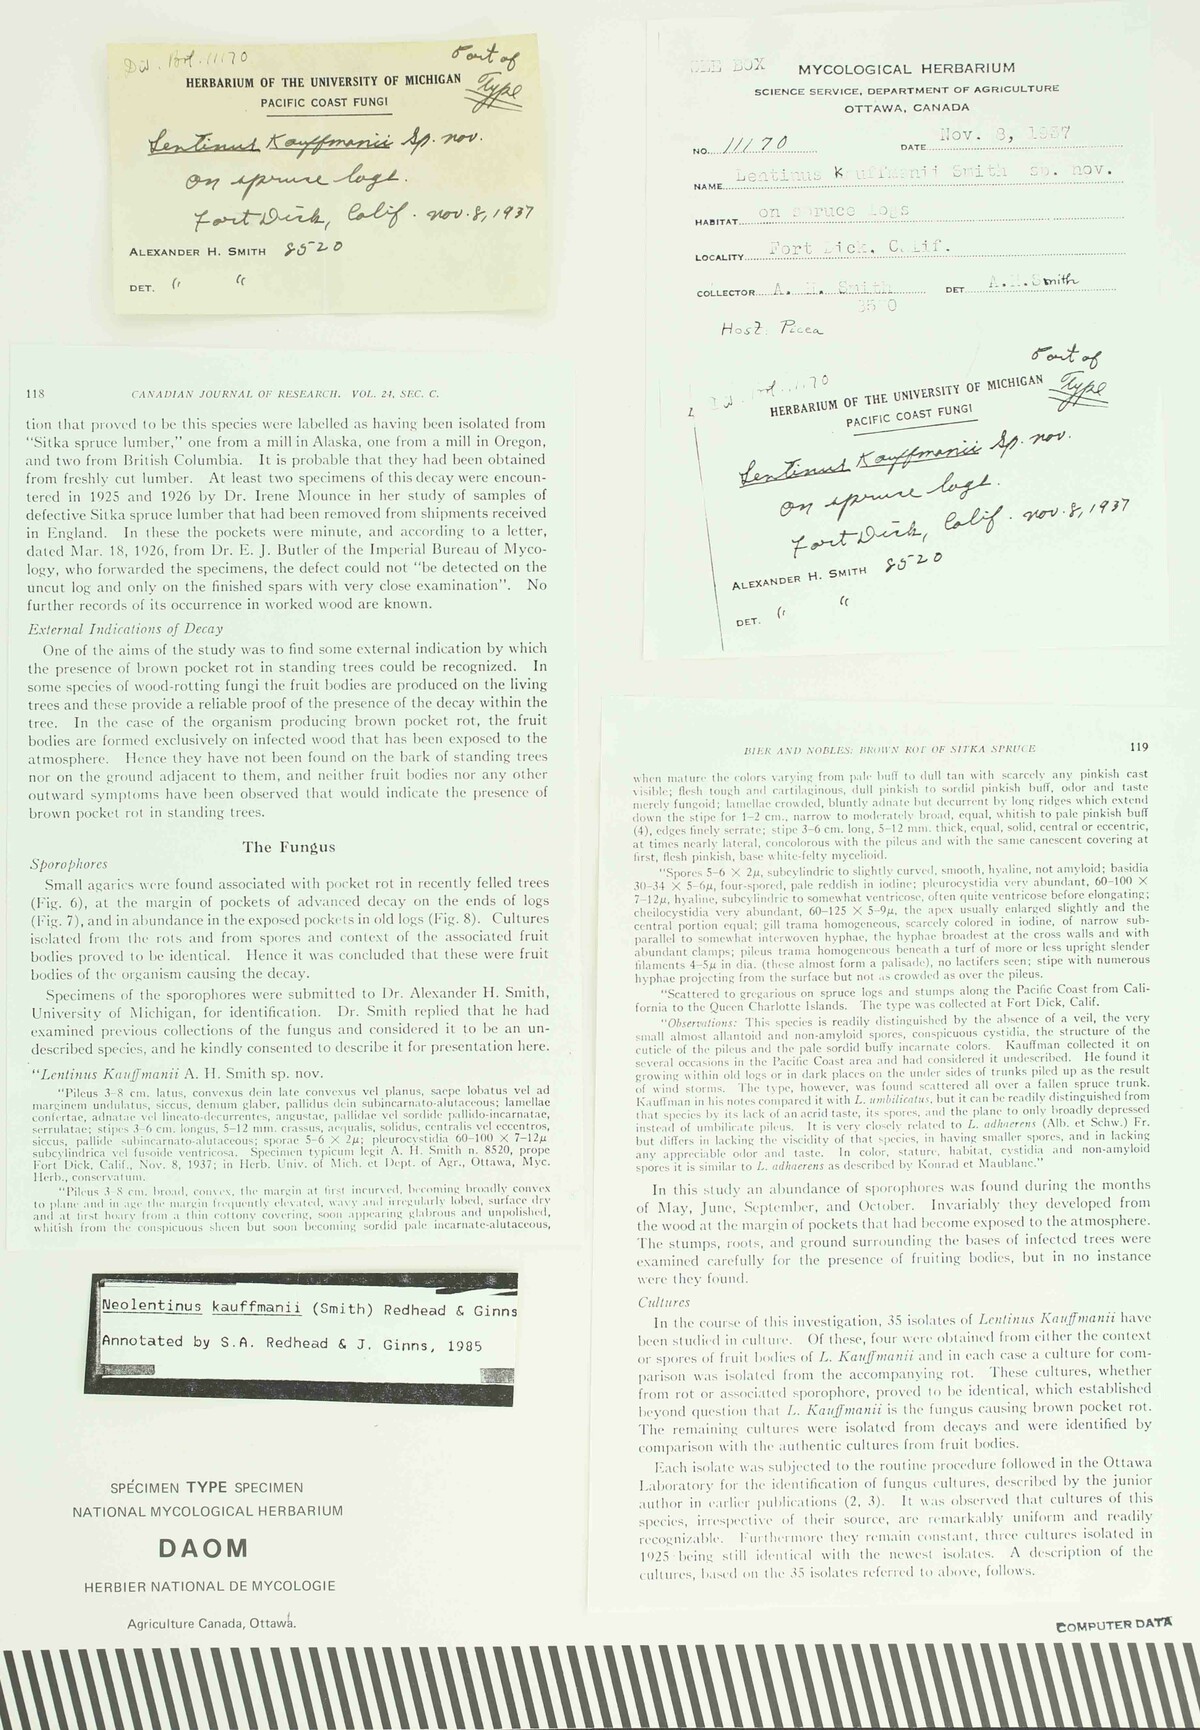 Div. Bot. 11170
Part of
Type
HERBARIUM OF THE UNIVERSITY OF MICHIGAN
PACIFIC COAST FUNGI
Lentinus Kauffmanii Sp. nov.
on spruce logs.
Fort Dick, Calif. nov. 8, 1937
ALEXANDER H. SMITH 8520
DET. " "
SEE BOX
MYCOLOGICAL HERBARIUM
SCIENCE SERVICE, DEPARTMENT OF AGRICULTURE
OTTAWA, CANADA
NO. 11170 DATE Nov. 8, 1937
NAME Lentinus Kauffmanii Smith sp. nov.
HABITAT on spruce logs
LOCALITY Fort Dick, Calif.
COLLECTOR A. H. Smith DET A.H.Smith
Host Picea
Part of
Type
HERBARIUM OF THE UNIVERSITY OF MICHIGAN
PACIFIC COAST FUNGI
Lentinus Kauffmanii Sp. nov.
on spruce logs.
Fort Dick, Calif. nov. 8, 1937
ALEXANDER H. SMITH 8520
DET. " "
118 CANADIAN JOURNAL OF RESEARCH. VOL. 24, SEC. C.
tion that proved to be this species were labelled as having been isolated from
"Sitka spruce lumber," one from a mill in Alaska, one from a mill in Oregon,
and two from British Columbia. It is probable that they had been obtained
from freshly cut lumber. At least two specimens of this decay were encoun-
tered in 1925 and 1926 by Dr. Irene Mounce in her study of samples of
defective Sitka spruce lumber that had been removed from shipments received
in England. In these the pockets were minute, and according to a letter,
dated Mar. 18, 1926, from Dr. E. J. Butler of the Imperial Bureau of Myco-
logy, who forwarded the specimens, the defect could not "be detected on the
uncut log and only on the finished spars with very close examination". No
further records of its occurrence in worked wood are known.
External Indications of Decay
One of the aims of the study was to find some external indication by which
the presence of brown pocket rot in standing trees could be recognized. In
some species of wood-rotting fungi the fruit bodies are produced on the living
trees and these provide a reliable proof of the presence of the decay within the
tree. In the case of the organism producing brown pocket rot, the fruit
bodies are formed exclusively on infected wood that has been exposed to the
atmosphere. Hence they have not been found on the bark of standing trees
nor on the ground adjacent to them, and neither fruit bodies nor any other
outward symptoms have been observed that would indicate the presence of
brown pocket rot in standing trees.
The Fungus
Sporophores
Small agarics were found associated with pocket rot in recently felled trees
(Fig. 6), at the margin of pockets of advanced decay on the ends of logs
(Fig. 7), and in abundance in the exposed pockets in old logs (Fig. 8). Cultures
isolated from the rots and from spores and context of the associated fruit
bodies proved to be identical. Hence it was concluded that these were fruit
bodies of the organism causing the decay.
Specimens of the sporophores were submitted to Dr. Alexander H. Smith,
University of Michigan, for identification. Dr. Smith replied that he had
examined previous collections of the fungus and considered it to be an un-
described species, and he kindly consented to describe it for presentation here.
"Lentinus Kauffmanii A. H. Smith sp. nov.
"Pileus 3-8 cm. latus, convexus dein late convexus vel planus, saepe lobatus vel ad
marginem undulatus, siccus, demum glaber, pallidus dein subincarnato-alutaceus; lamellae
confertae, adnatae vel lineato-decurrentes, angustae, pallidae vel sordide pallido-incarnatae,
serrulatae; stipes 3-6 cm. longus, 5-12 mm. crassus, aequalis, solidus, centralis vel eccentros,
siccus, pallide subincarnato-alutaceus; sporae 5-6 × 2μ; pleurocystidia 60-100 × 7-12μ
subcylindrica vel fusoide ventricosa. Specimen typicum legit A. H. Smith n. 8520, prope
Fort Dick, Calif., Nov. 8, 1937; in Herb. Univ. of Mich. et Dept. of Agr., Ottawa, Myc.
Herb., conservatum.
"Pileus 3-8 cm. broad, convex, the margin at first incurved, becoming broadly convex
to plane and in age the margin frequently elevated, wavy and irregularly lobed, surface dry
and at first hoary from a thin cottony covering, soon appearing glabrous and unpolished,
whitish from the conspicuous sheen but soon becoming sordid pale incarnate-alutaceous,
BIER AND NOBLES: BROWN ROT OF SITKA SPRUCE 119
when mature the colors varying from pale buff to dull tan with scarcely any pinkish cast
visible; flesh tough and cartilaginous, dull pinkish to sordid pinkish buff, odor and taste
merely fungoid; lamellae crowded, bluntly adnate but decurrent by long ridges which extend
down the stipe for 1-2 cm., narrow to moderately broad, equal, whitish to pale pinkish buff
(4), edges finely serrate; stipe 3-6 cm. long, 5-12 mm. thick, equal, solid, central or eccentric,
at times nearly lateral, concolorous with the pileus and with the same canescent covering at
first, flesh pinkish, base white-felty mycelioid.
"Spores 5-6 × 2μ, subcylindric to slightly curved, smooth, hyaline, not amyloid; basidia
30-34 × 5-6μ, four-spored, pale reddish in iodine; pleurocystidia very abundant, 60-100 ×
7-12μ, hyaline, subcylindric to somewhat ventricose, often quite ventricose before elongating;
cheilocystidia very abundant, 60-125 × 5-9μ, the apex usually enlarged slightly and the
central portion equal; gill trama homogeneous, scarcely colored in iodine, of narrow sub-
parallel to somewhat interwoven hyphae, the hyphae broadest at the cross walls and with
abundant clamps; pileus trama homogeneous beneath a turf of more or less upright slender
filaments 4-5μ in dia. (these almost form a palisade), no lactifers seen; stipe with numerous
hyphae projecting from the surface but not as crowded as over the pileus.
"Scattered to gregarious on spruce logs and stumps along the Pacific Coast from Cali-
fornia to the Queen Charlotte Islands. The type was collected at Fort Dick, Calif.
"Observations: This species is readily distinguished by the absence of a veil, the very
small almost allantoid and non-amyloid spores, conspicuous cystidia, the structure of the
cuticle of the pileus and the pale sordid buffy incarnate colors. Kauffman collected it on
several occasions in the Pacific Coast area and had considered it undescribed. He found it
growing within old logs or in dark places on the under sides of trunks piled up as the result
of wind storms. The type, however, was found scattered all over a fallen spruce trunk.
Kauffman in his notes compared it with L. umbilicatus, but it can be readily distinguished from
that species by its lack of an acrid taste, its spores, and the plane to only broadly depressed
instead of umbilicate pileus. It is very closely related to L. adhaerens (Alb. et Schw.) Fr.
but differs in lacking the viscidity of that species, in having smaller spores, and in lacking
any appreciable odor and taste. In color, stature, habitat, cystidia and non-amyloid
spores it is similar to L. adhaerens as described by Konrad et Maublanc."
In this study an abundance of sporophores was found during the months
of May, June, September, and October. Invariably they developed from
the wood at the margin of pockets that had become exposed to the atmosphere.
The stumps, roots, and ground surrounding the bases of infected trees were
examined carefully for the presence of fruiting bodies, but in no instance
were they found.
Cultures
In the course of this investigation, 35 isolates of Lentinus Kauffmanii have
been studied in culture. Of these, four were obtained from either the context
or spores of fruit bodies of L. Kauffmanii and in each case a culture for com-
parison was isolated from the accompanying rot. These cultures, whether
from rot or associated sporophore, proved to be identical, which established
beyond question that L. Kauffmanii is the fungus causing brown pocket rot.
The remaining cultures were isolated from decays and were identified by
comparison with the authentic cultures from fruit bodies.
Each isolate was subjected to the routine procedure followed in the Ottawa
Laboratory for the identification of fungus cultures, described by the junior
author in earlier publications (2, 3). It was observed that cultures of this
species, irrespective of their source, are remarkably uniform and readily
recognizable. Furthermore they remain constant, three cultures isolated in
1925 being still identical with the newest isolates. A description of the
cultures, based on the 35 isolates referred to above, follows.
Neolentinus kauffmanii (Smith) Redhead & Ginns
Annotated by S.A. Redhead & J. Ginns, 1985
SPÉCIMEN TYPE SPECIMEN
NATIONAL MYCOLOGICAL HERBARIUM
DAOM
HERBIER NATIONAL DE MYCOLOGIE
Agriculture Canada, Ottawa.
COMPUTER DATA